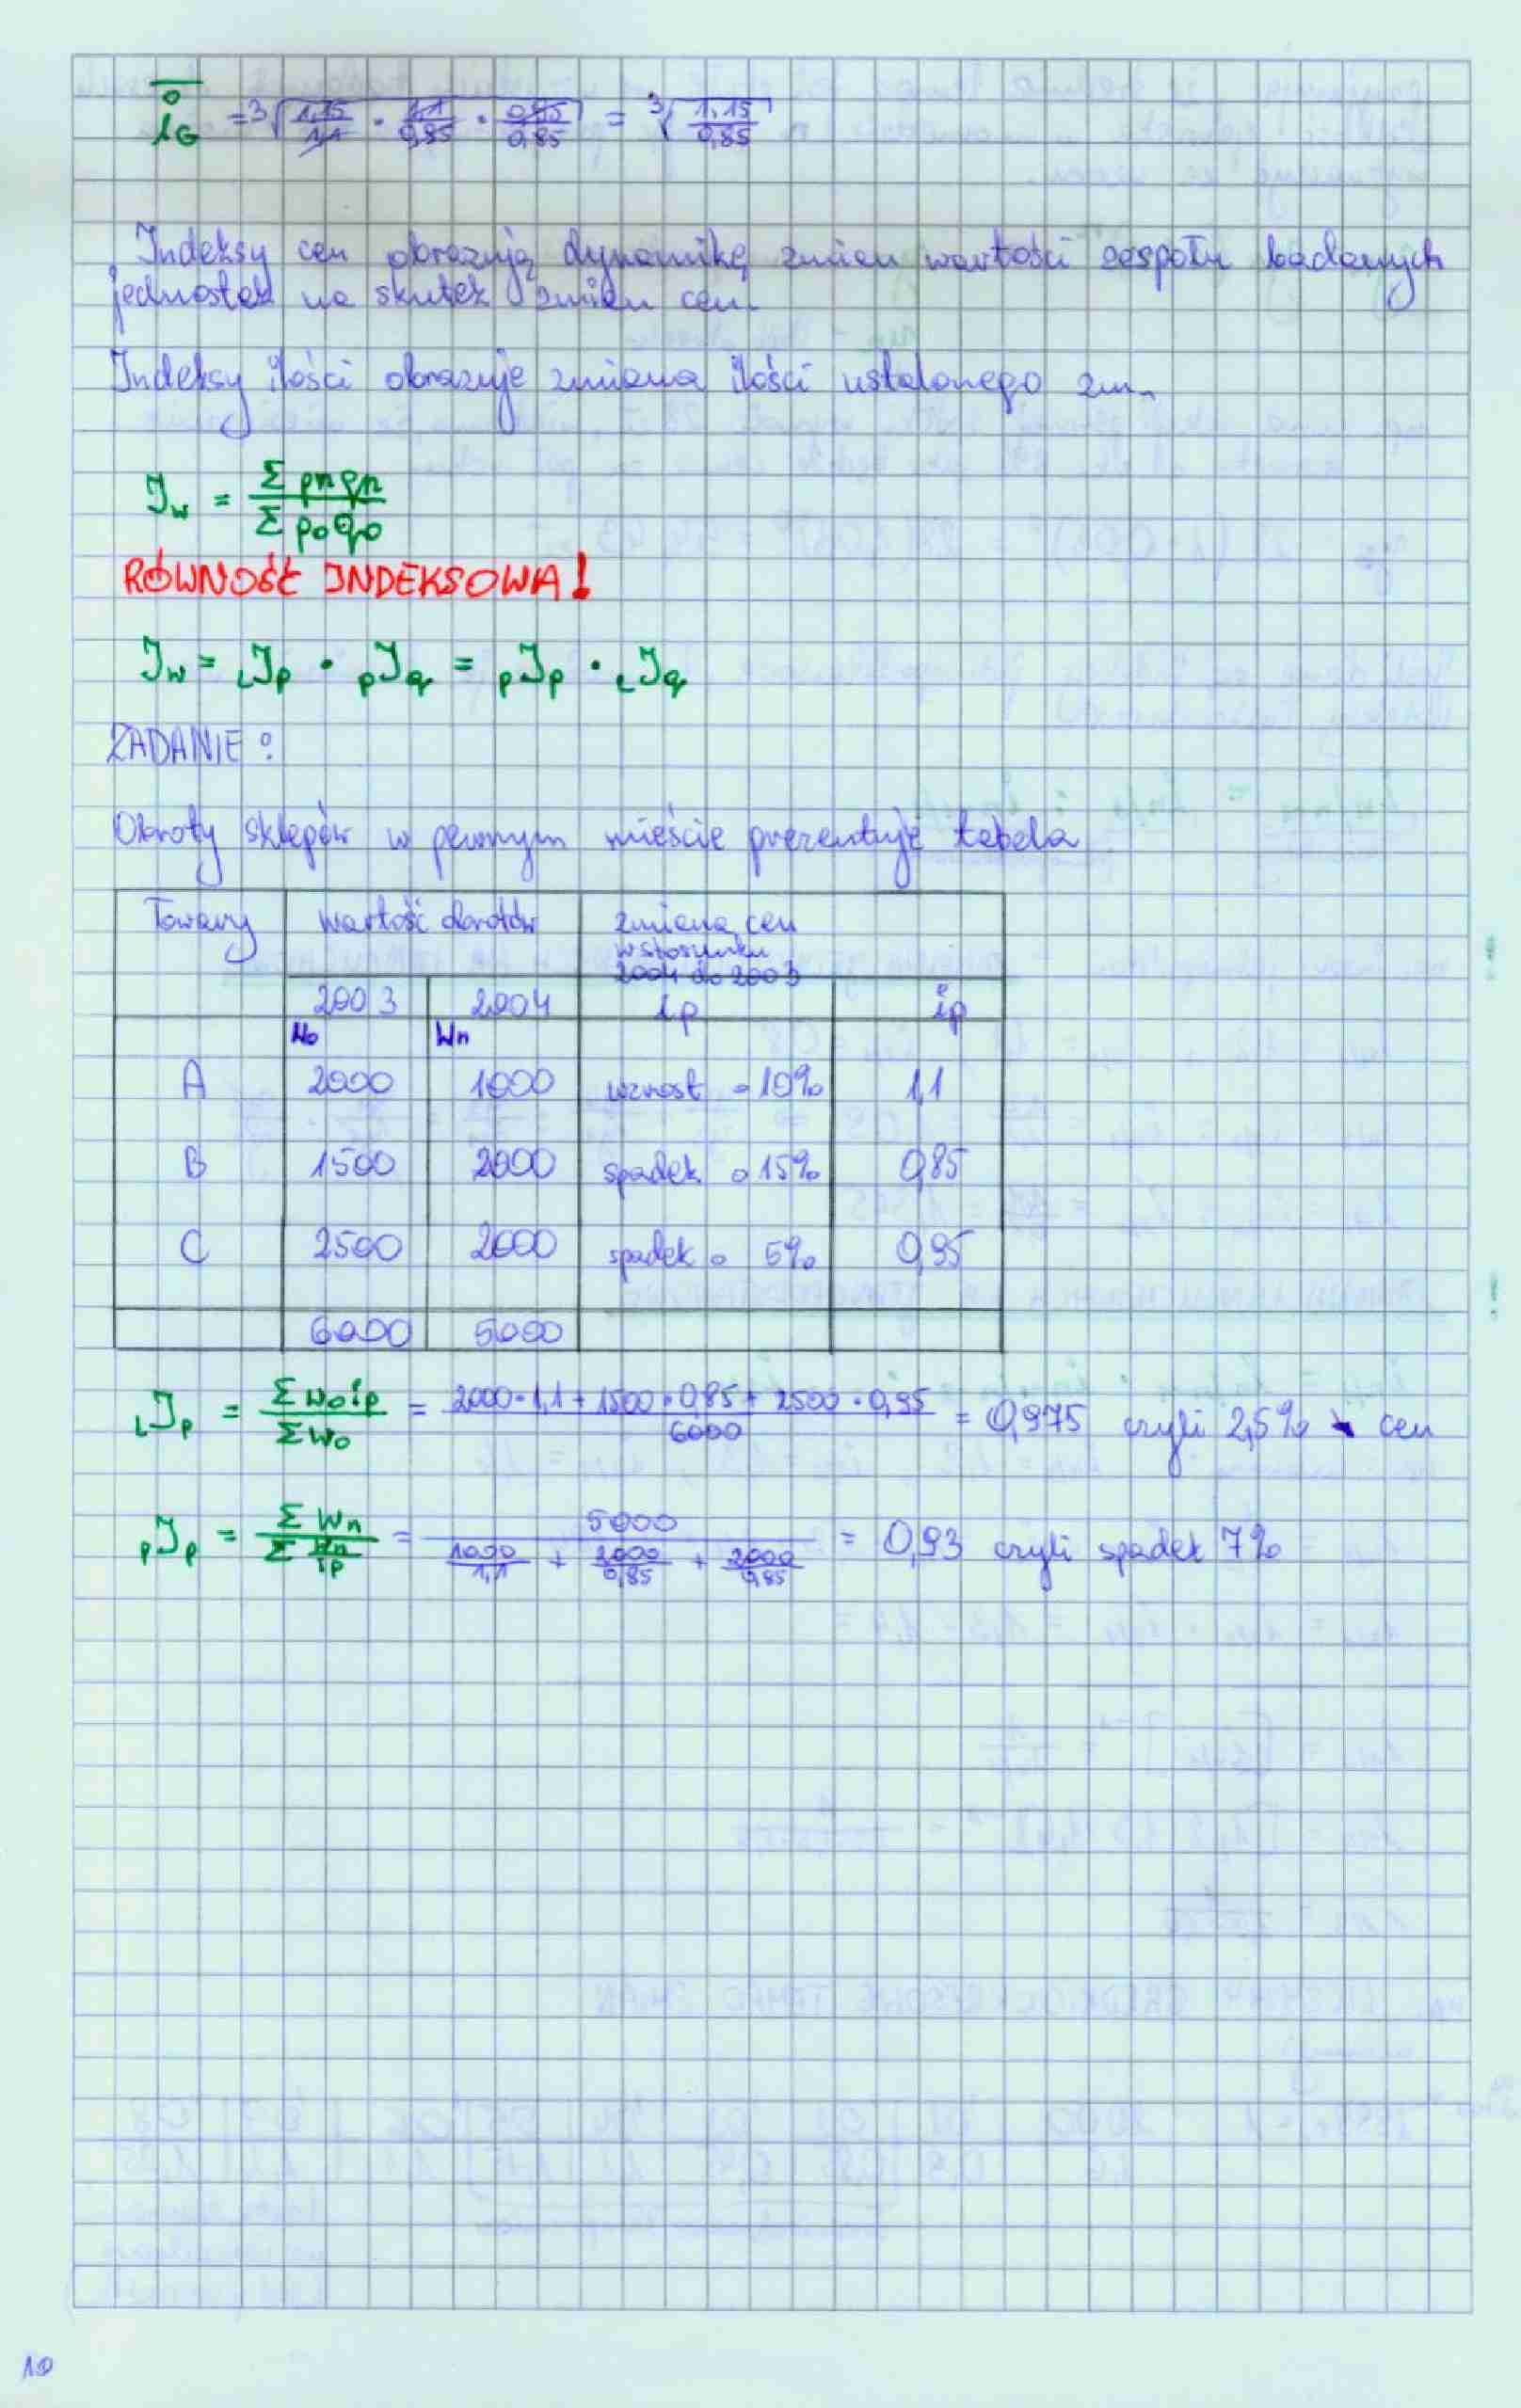 i̅G = ³√(1,15/1,1 · 1,1/0,95 · 0,95/0,85) = ³√(1,15/0,85)
Indeksy cen obrazują dynamikę zmian wartości zespołu badanych
jednostek na skutek zmian cen.
Indeksy ilości obrazuje zmiana ilości ustalonego zm.
Iw = Σ pn qn / Σ p0 q0
RÓWNOŚĆ INDEKSOWA!
Iw = LIp · pIq = pIp · LIq
ZADANIE:
Obroty sklepów w pewnym mieście prezentuje tabela
Towary | Wartość obrotów | zmiana cen
w stosunku
2004 do 2003
2003 | 2004 | ip | ip
W0 | Wn
A | 2000 | 1000 | wzrost o 10% | 1,1
B | 1500 | 2000 | spadek o 15% | 0,85
C | 2500 | 2000 | spadek o 5% | 0,95
6000 | 5000
LIp = Σ w0 ip / Σ w0 = (2000·1,1 + 1500·0,85 + 2500·0,95) / 6000 = 0,975 czyli 2,5% ↘ cen
pIp = Σ Wn / Σ (Wn/ip) = 5000 / (1000/1,1 + 2000/0,85 + 2000/0,85) = 0,93 czyli spadek 7%
10